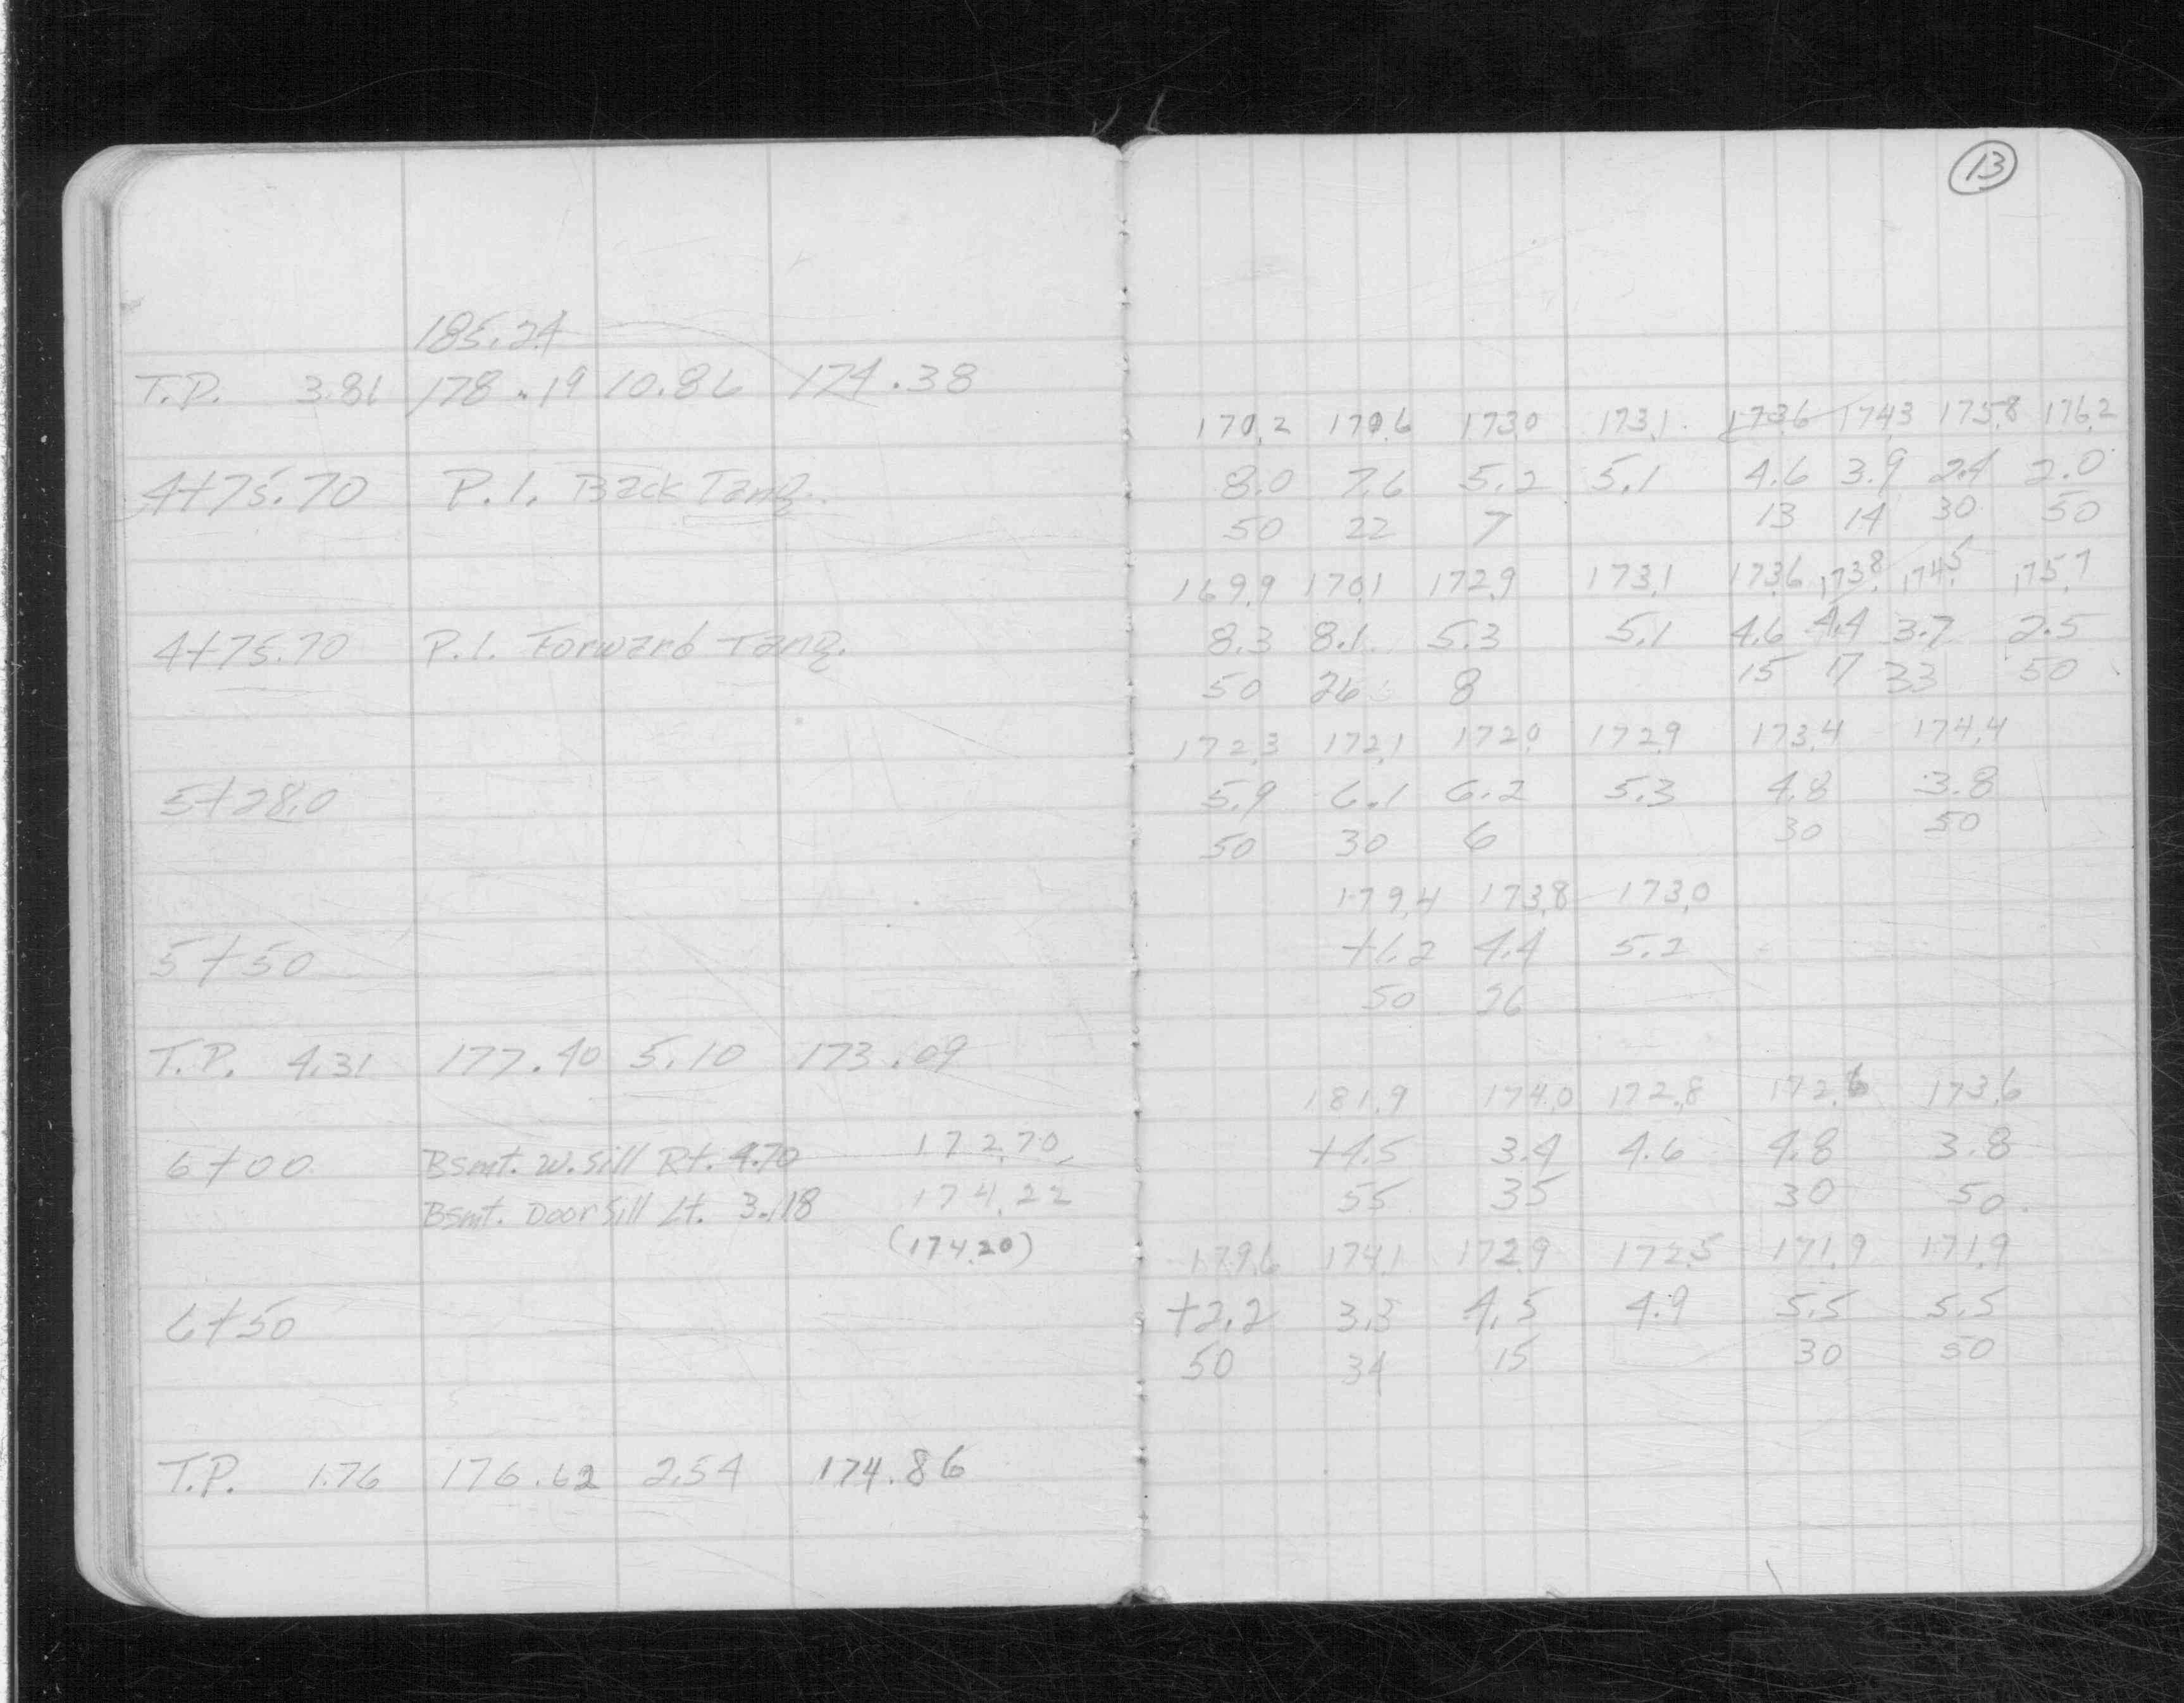 13
185.24
T.P. 3.81 178.19 10.86 174.38
170.2 170.6 173.0 173.1 173.6 174.3 175.8 176.2
4+75.70 P.I. Back Tang. 8.0 7.6 5.2 5.1 4.6 3.9 2.4 2.0
50 22 7 13 14 30 50
169.9 170.1 172.9 173.1 173.6 173.8 174.5 175.7
4+75.70 P.I. Forward Tang. 8.3 8.1 5.3 5.1 4.6 4.4 3.7 2.5
50 26 8 15 17 33 50
172.3 172.1 172.0 172.9 173.4 174.4
5+28.0 5.9 6.1 6.2 5.3 4.8 3.8
50 30 6 30 50
179.4 173.8 173.0
5+50 4.4 5.2
50
T.P. 4.31 177.40 5.10 173.09
181.9 174.0 172.8 172.6 173.6
6+00 Bsmt. W. Sill Rt. 4.70 172.70 +4.5 3.4 4.6 4.8 3.8
Bsmt. Door Sill Lt. 3.18 174.22 55 35 30 50
(174.20) 179.6 174.1 172.9 172.5 171.9 171.9
6+50 +2.2 3.3 4.5 4.9 5.5 5.5
50 34 15 30 50
T.P. 1.76 176.62 2.54 174.86